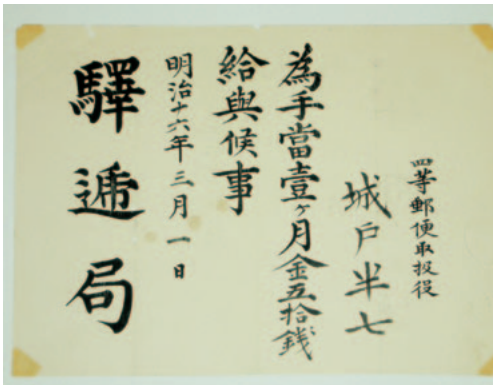 四等郵便取扱役
城戸半七
為手當壹ヶ月金五拾銭
給與候事
明治十六年三月一日
驛遞局